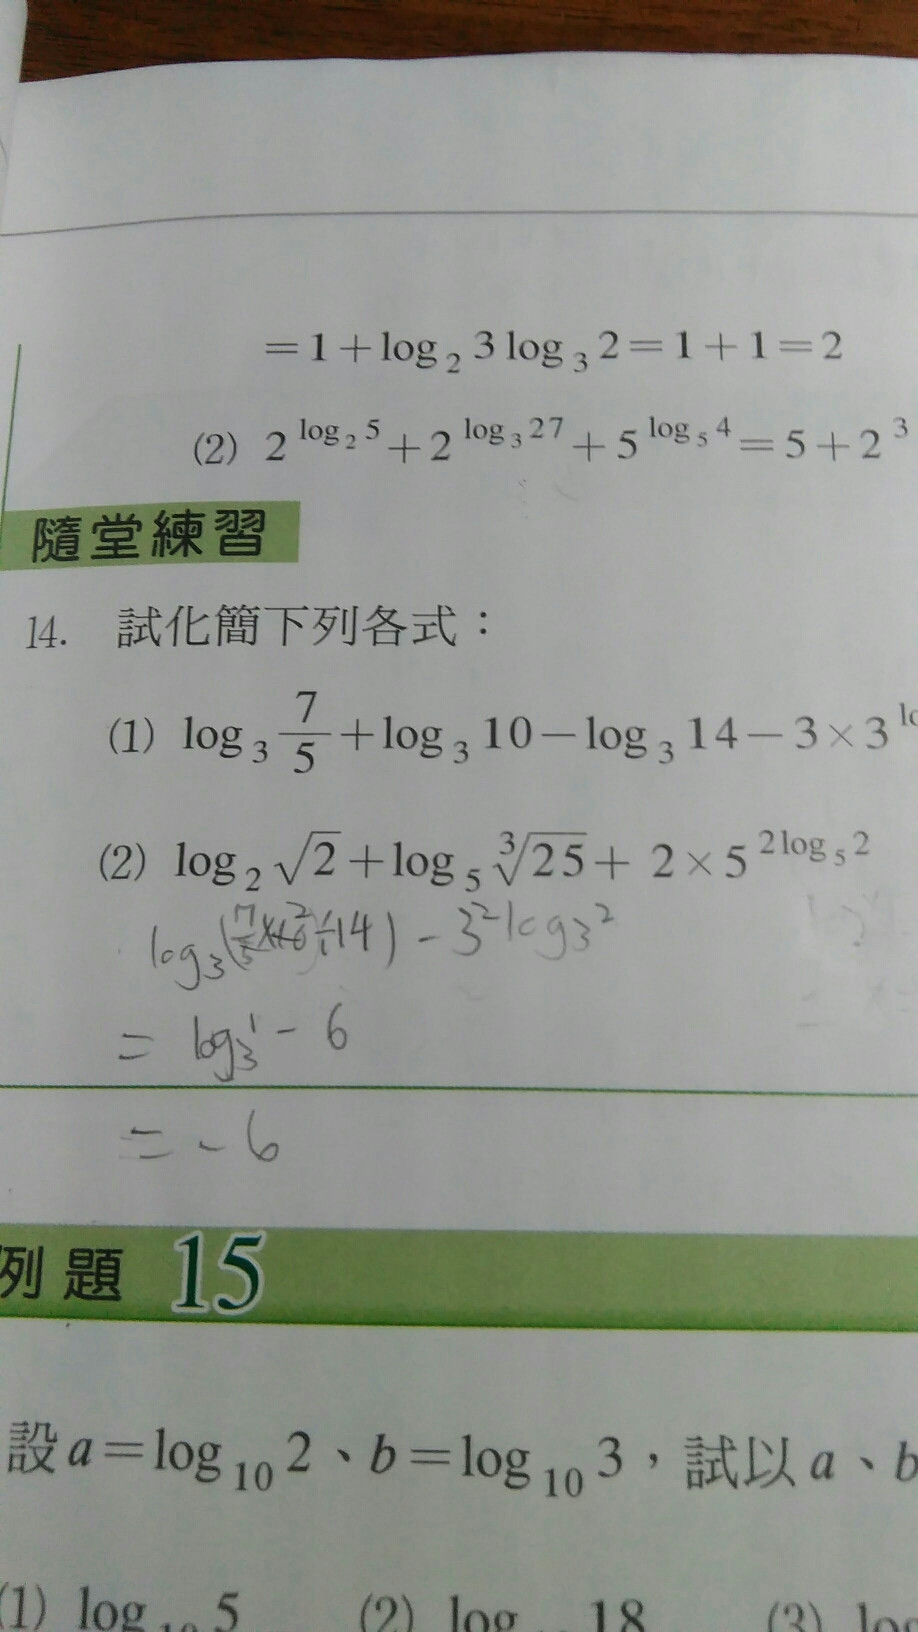 =1+log₂3log₃2=1+1=2
(2) 2^{log₂5}+2^{log₃27}+5^{log₅4}=5+2³
隨堂練習
14. 試化簡下列各式：
(1) log₃ 7/5 +log₃10−log₃14−3×3
(2) log₂√2+log₅∛25+ 2×5^{2log₅2}
log₃( 7/5 × 10 ÷14) − 3²log₃²
= log₃¹ − 6
= -6
例題 15
設a=log₁₀2、b=log₁₀3，試以a、b
(1) log₁₀5 (2) log 18 (3)